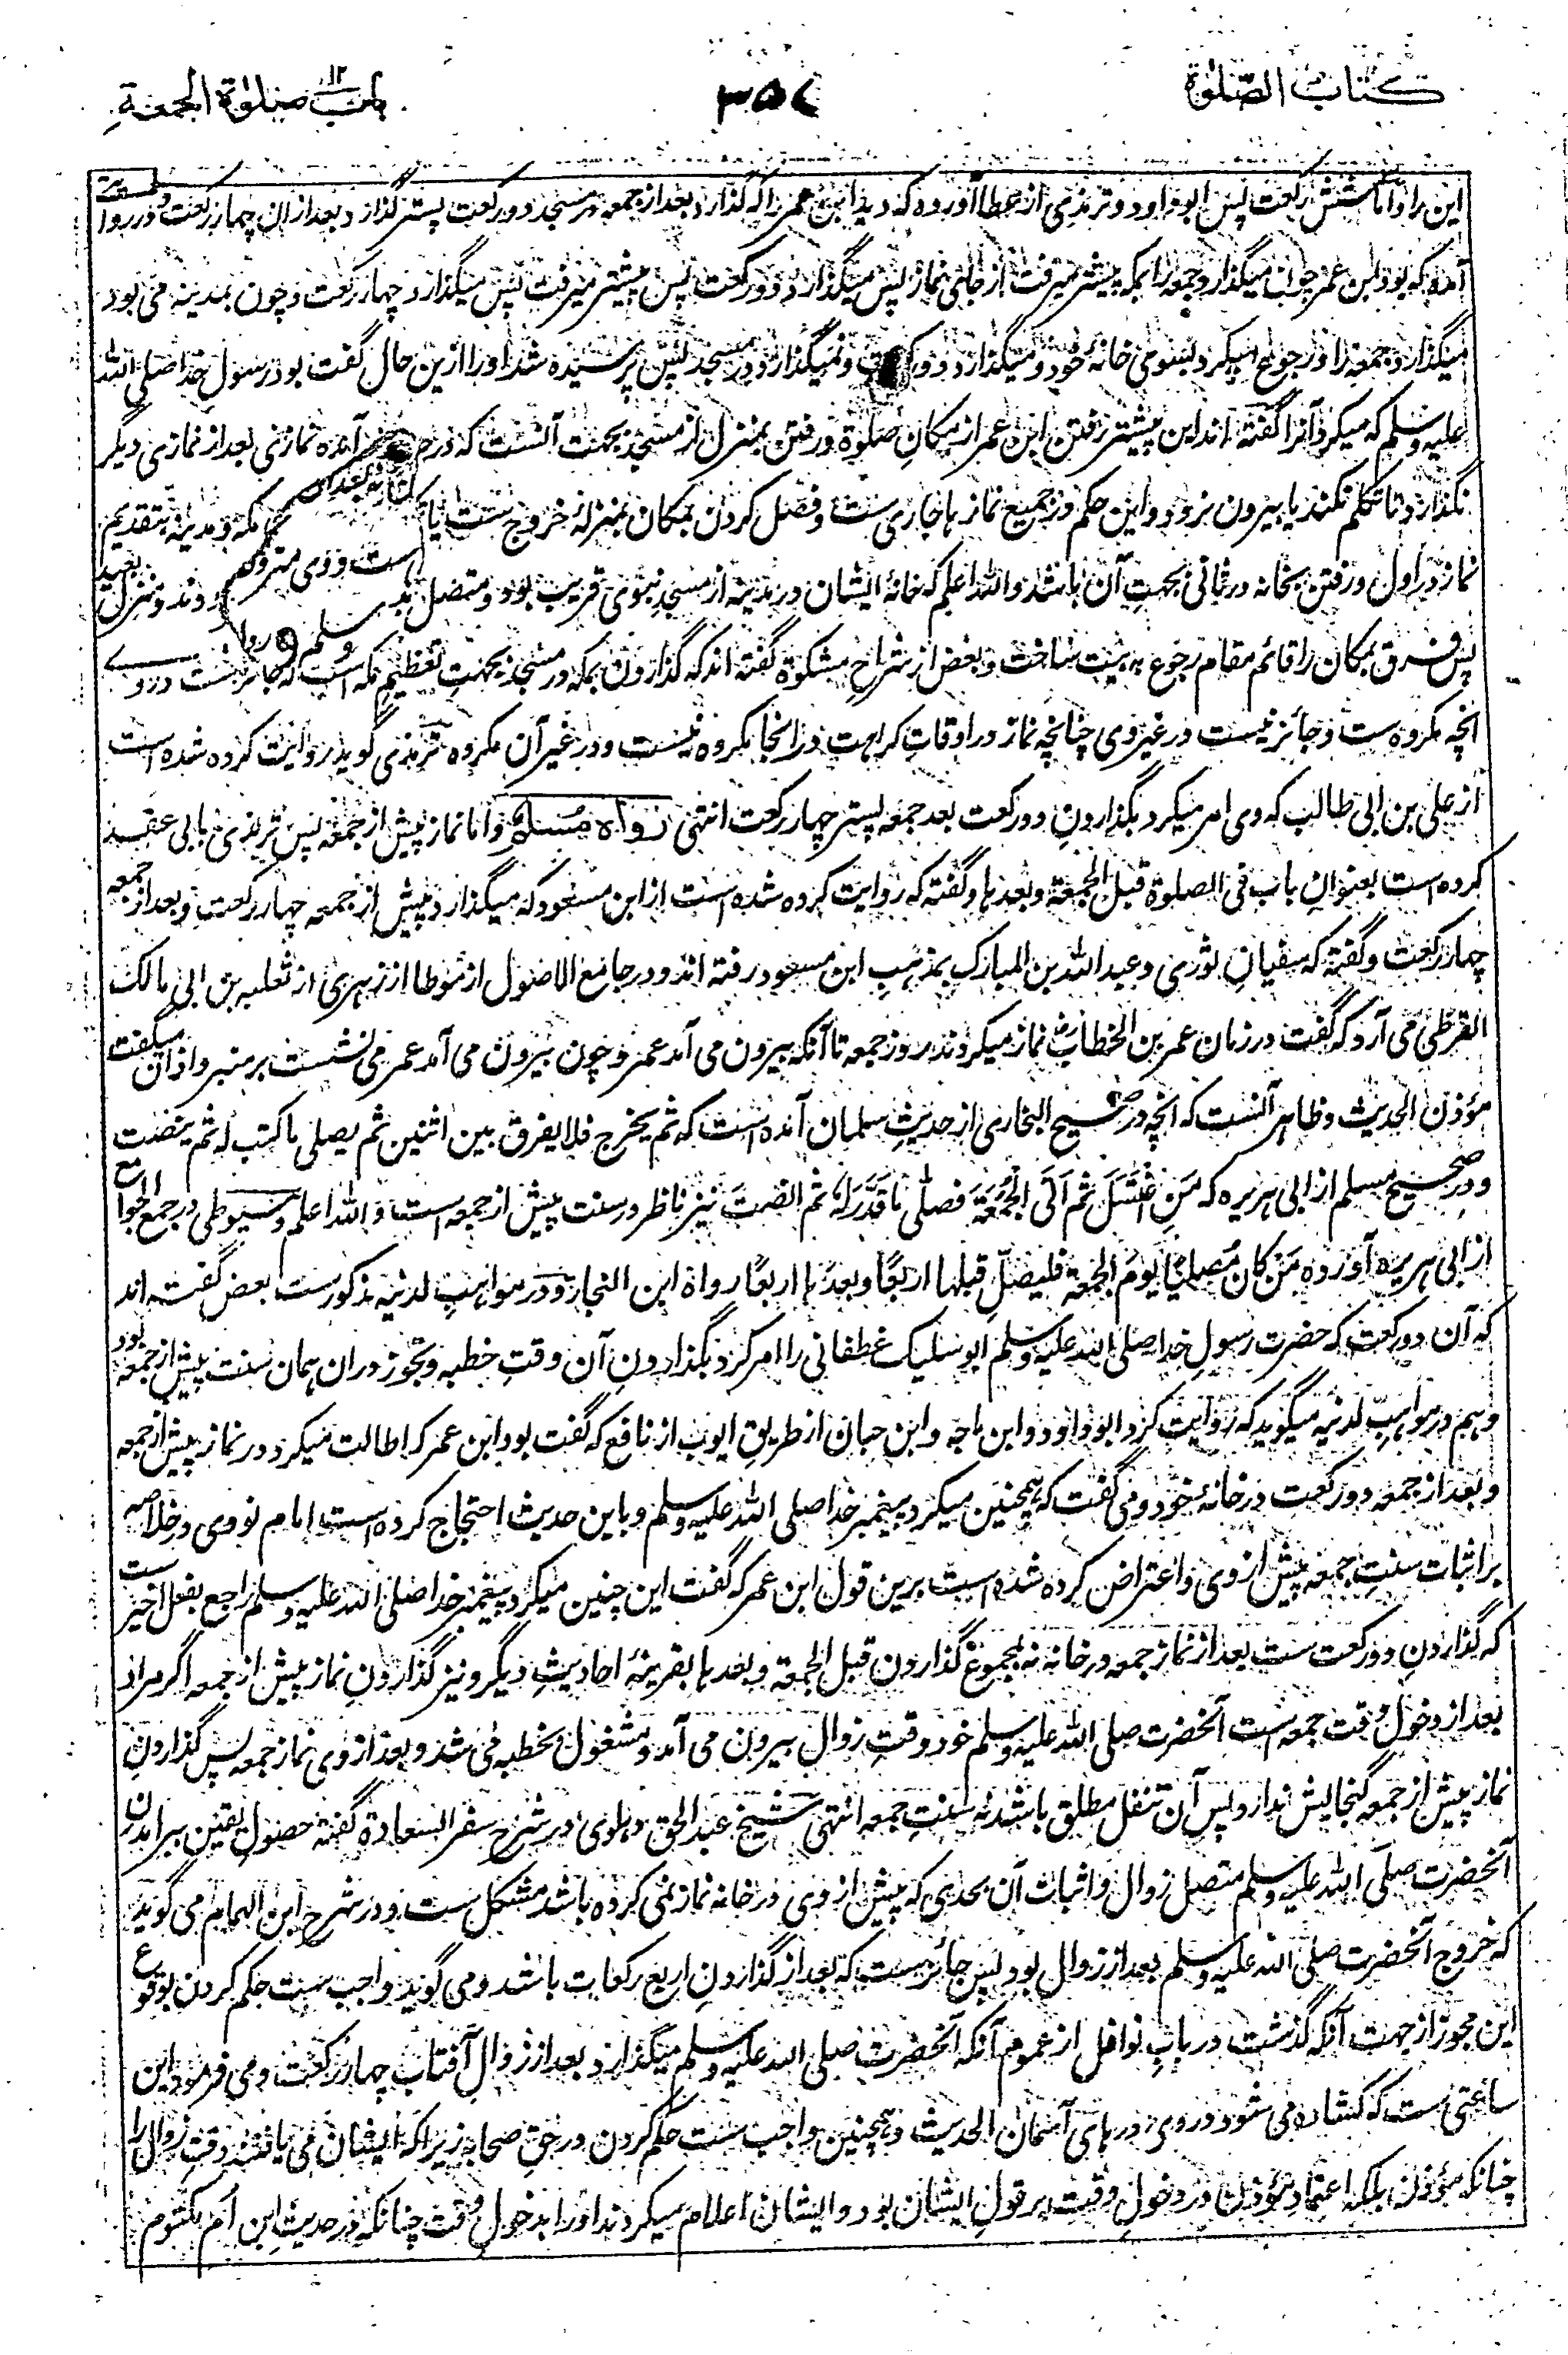 كتاب الصلوٰة
٣٥٧
باب صلوٰة الجمعة
این را و اما شش رکعت پس ابو داود و ترمذی از عطا آورده که دید ابن عمر را که گذارد بعد از جمعه در مسجد دو رکعت پستر گذارد بعد از ان چهار رکعت و در روایت
آمده که بود ابن عمر چون میگذارد جمعه را بمکه پیشتر میرفت از جای نماز پس میگذارد دو رکعت پس پیشتر میرفت پس میگذارد چهار رکعت و چون بمدینه می بود
میگذارد جمعه را و رجوع میکرد بسوی خانهٔ خود و میگذارد دو و نمیگذارد در مسجد پس پرسیده شد او را ازین حال گفت بود رسول خدا صلی الله
علیه وسلم که میکرد آنرا گفته اند این پیشتر رفتن ابن عمر از مکان صلوة و رفتن بمنزل از مسجد بجهت آنست که در آمده نمازی بعد از نمازی دیگر
نگذارد تا تکلم نکند یا بیرون نرود و این حکم در جمیع نماز ها جاری ست و فصل کردن بمکان بمنزلهٔ خروج ست مکه و مدینه بتقدیم
نماز در اول و رفتن بخانه در ثانی بجهت آن باشد والله اعلم که خانهٔ ایشان در مدینه از مسجد نبوی قریب بود و متصل و منزل بعید
پس فرق بمکان را قائم مقام رجوع به بیت ساخت و بعض از شراح مشکوة گفته اند که گذاردن بمکه در مسجد بجهت تعظیم مکه است که جائز ست در وے
انچه مکروه ست و جائز نیست در غیر وی چنانچه نماز در اوقات کراهت در انجا مکروه نیست و در غیر آن مکروه ترمذی گوید روایت کرده شده است
از علی بن ابی طالب که وی امر میکرد بگذاردن دو رکعت بعد جمعه پستر چهار رکعت انتهی رواه مسلم و اما نماز پیش از جمعه پس ترمذی بابی عقد
کرده است بعنوان باب فی الصلوة قبل الجمعة و بعدها و گفته که روایت کرده شده است از ابن مسعود که میگذارد پیش از جمعه چهار رکعت و بعد از جمعه
چهار رکعت و گفته که سفیان ثوری و عبد الله بن المبارک بمذهب ابن مسعود رفته اند و در جامع الاصول از موطا از زهری از ثعلبه بن ابی مالک
القرظی می آرد که گفت در زمان عمر بن الخطاب نماز میکردند روز جمعه تا آنکه بیرون می آمد عمر و چون بیرون می آمد عمر می نشست بر منبر و اذان میگفت
مؤذن الحدیث و ظاهر آنست که انچه در صحیح البخاری از حدیث سلمان آمده است که ثم یخرج فلا یفرق بین اثنین ثم یصلی ما کتب له ثم ینصت
و در صحیح مسلم از ابی هریره که من اغتسل ثم اتی الجمعة فصلی ما قدر له ثم انصت نیز ناظر در سنت پیش از جمعه است والله اعلم و سیوطی در جمع الجوامع
از ابی هریره آورده من کان مصلیا یوم الجمعة فلیصل قبلها اربعا و بعدها اربعا رواه ابن النجار و در مواهب لدنیه مذکورست بعض گفته اند
که آن دو رکعت که حضرت رسول خدا صلی الله علیه وسلم ابو سلیک غطفانی را امر کرد بگذاردن آن وقت خطبه و تجوز دران همان سنت پیش از جمعه بود
و هم در مواهب لدنیه میگوید که روایت کرد ابو داود و ابن ماجه و ابن حبان از طریق ایوب از نافع که گفت بود ابن عمر که اطالت میکرد در نماز پیش از جمعه
و بعد از جمعه دو رکعت در خانهٔ خود و می گفت که همچنین میکرد پیغمبر خدا صلی الله علیه وسلم و باین حدیث احتجاج کرده است امام نووی در خلاصه
بر اثبات سنت جمعه پیش از وی و اعتراض کرده شده است برین قول ابن عمر که گفت این چنین میکرد پیغمبر خدا صلی الله علیه وسلم راجع بفعل اخیر ست
که گذاردن دو رکعت ست بعد از نماز جمعه در خانه نه بمجموع گذاردن قبل الجمعة و بعدها بقرینهٔ احادیث دیگر و نیز گذاردن نماز پیش از جمعه اگر مراد
بعد از دخول وقت جمعه است آنحضرت صلی الله علیه وسلم خود وقت زوال بیرون می آمد و مشغول بخطبه می شد و بعد از وی نماز جمعه پس گذاردن
نماز پیش از جمعه گنجایش ندارد پس آن تنفل مطلق باشد نه سنت جمعه انتهی شیخ عبد الحق دهلوی در شرح سفر السعادة گفته حصول یقین ببر آمدن
آنحضرت صلی الله علیه وسلم متصل زوال و اثبات آن بحدی که پیش از وی در خانه نماز نمی کرده باشد مشکل ست و در شرح ابن الهمام می گوید
که خروج آنحضرت صلی الله علیه وسلم بعد از زوال بود پس جائزست که بعد از گذاردن اربع رکعات باشد و می گوید واجب ست حکم کردن بوقوع
این مجوز از جهت آنکه گذشت در باب نوافل از عموم آنکه آنحضرت صلی الله علیه وسلم میگذارد بعد از زوال آفتاب چهار رکعت و می فرمود این
ساعتی ست که کشاده می شود در وی در های آسمان الحدیث و همچنین واجب ست حکم کردن در حق صحابه زیرا که ایشان می یافتند وقت زوال را
چنانکه مؤذن بلکه اعتماد مؤذن در دخول وقت بر قول ایشان بود و ایشان اعلام میکردند او را بدخول وقت چنانکه در حدیث ابن ام مکتوم